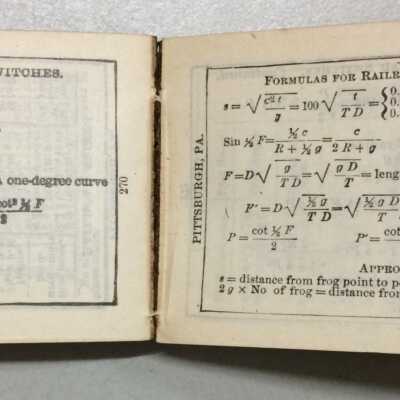 WITCHES.
A one-degree curve
cot² ½ F
270
PITTSBURGH, PA.
FORMULAS FOR RAILR
s = √ c² t / g = 100 √ t / T D = { 0. 0. 0.
Sin ½ F = ½ c / R + ½ g = c / 2 R + g
F = D √ g / T D = √ g D / T = leng
F' = D √ ½ g / T D = √ ½ g D / T
P = cot ½ F / 2 P' = co
APPRO
s = distance from frog point to po
2 g × No of frog = distance from